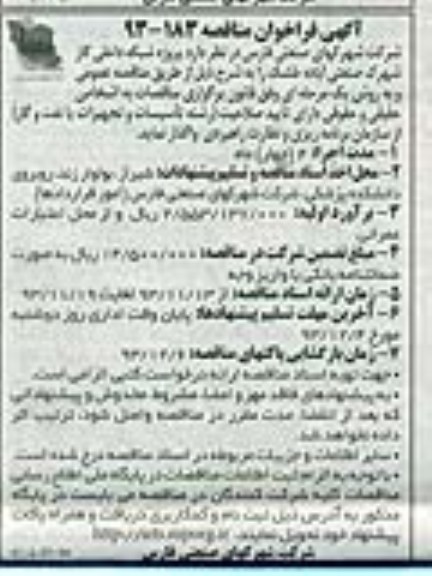 آگهی فراخوان مناقصه ۱۸۳-۹۳
شرکت شهرکهای صنعتی فارس در نظر دارد پروژه شبکه داخلی گاز
شهرک صنعتی آباده طشک را به شرح ذیل از طریق مناقصه عمومی
و به روش یک مرحله ای وفق قانون برگزاری مناقصات به اشخاص
حقیقی و حقوقی دارای تایید صلاحیت رشته تاسیسات و تجهیزات یا نفت و گاز
از سازمان برنامه ریزی و نظارت راهبردی واگذار نماید.
۱- مدت اجرا: ۴ (چهار) ماه
۲- محل اخذ اسناد مناقصه و تسلیم پیشنهادات: شیراز، بولوار زند، روبروی
دانشکده پزشکی، شرکت شهرکهای صنعتی فارس (امور قراردادها)
۳- برآورد اولیه: ریال و از محل اعتبارات
عمرانی
۴- مبلغ تضمین شرکت در مناقصه: ریال به صورت
ضمانتنامه بانکی یا واریز وجه
۵- زمان ارائه اسناد مناقصه: از ۹۳/۱۱/۱۳ لغایت ۹۳/۱۱/۱۹
۶- آخرین مهلت تسلیم پیشنهادها: پایان وقت اداری روز دوشنبه
مورخ
۷- زمان بازگشایی پاکتهای مناقصه:
• جهت تهیه اسناد مناقصه ارائه درخواست کتبی الزامی است.
• به پیشنهادهای فاقد مهر و امضا، مشروط، مخدوش و پیشنهاداتی
که بعد از انقضا مدت مقرر در مناقصه واصل شود، ترتیب اثر
داده نخواهد شد.
• سایر اطلاعات و جزییات مربوطه در اسناد مناقصه درج شده است.
• باتوجه به الزام ثبت اطلاعات مناقصات در پایگاه ملی اطلاع رسانی
مناقصات کلیه شرکت کنندگان در مناقصه می بایست در پایگاه
مذکور به آدرس ذیل ثبت نام و کدکاربری دریافت و همراه پاکت
پیشنهاد خود تحویل نمایند.
شرکت شهرکهای صنعتی فارس